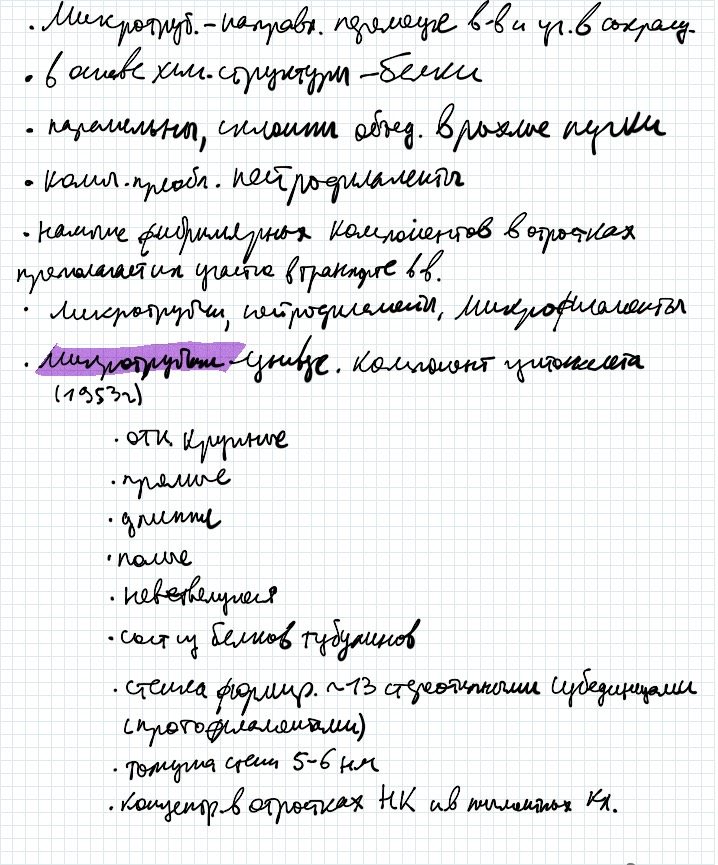 · Микротруб. – направл. перемещ в-в и уч. в сокращ.
· В основе хим. структуры – белки
· параллельны, склонны объед. в рыхлые пучки
· колич. преобл. нейрофиламенты
· наличие фибриллярных компонентов в отростках
предполагает их участие в транспорте в в.
· Микротрубки, нейрофиламенты, микрофиламенты
· Микротрубочки – универс. компонент цитоскелета
(1953г)
· отн. крупные
· прямые
· длинные
· полые
· неветвящиеся
· сост из белков тубулинов
· стенка формир. ~13 стереотипными субъединицами
(протофиламентами)
· толщина стенки 5-6 нм
· концентр. в отростках НК и в пигментных кл.